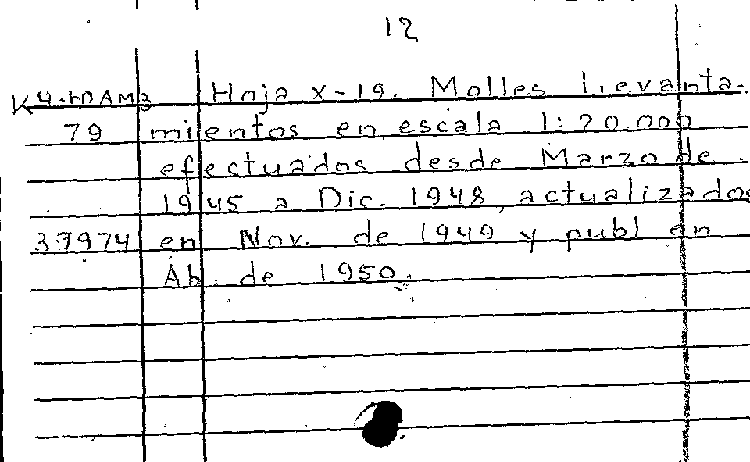 12
K4.10AM3 Hoja X-19. Molles Levanta-
79 mientos en escala 1:20.000
efectuados desde Marzo de
1945 a Dic. 1948, actualizados
37974 en Nov. de 1949 y publ en
Ab. de 1950.